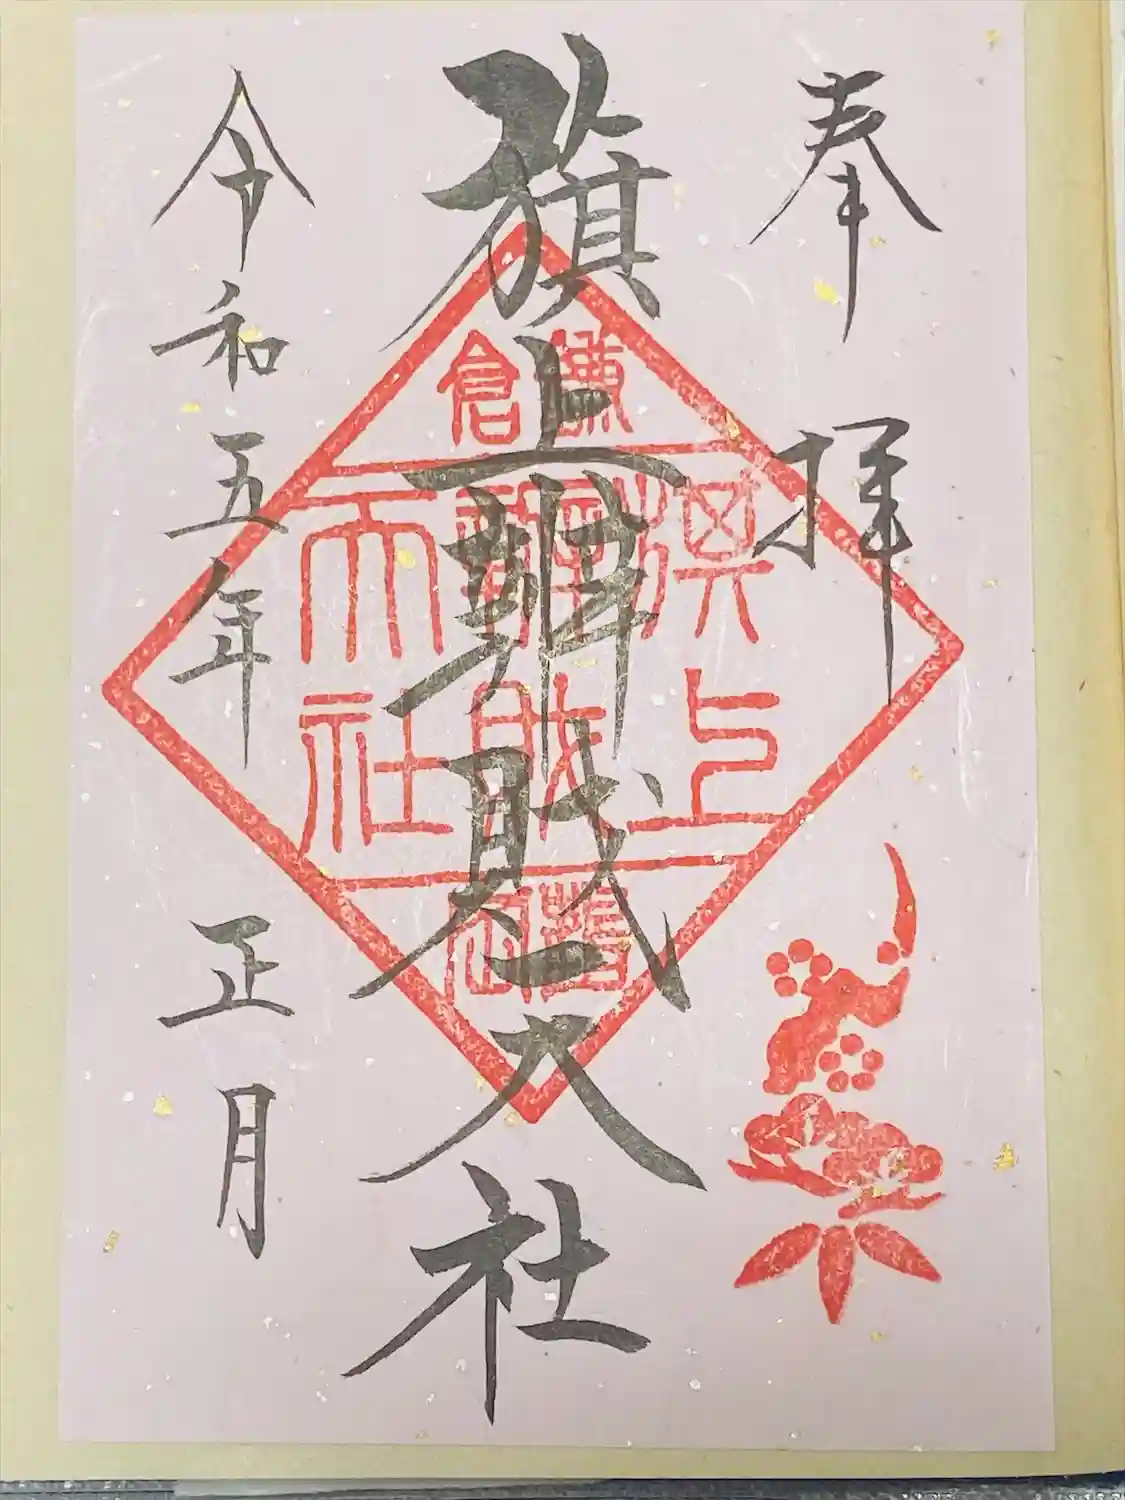 奉拝
旗上辨財天社
令和五年正月
鎌倉
旗上
辨財
天社